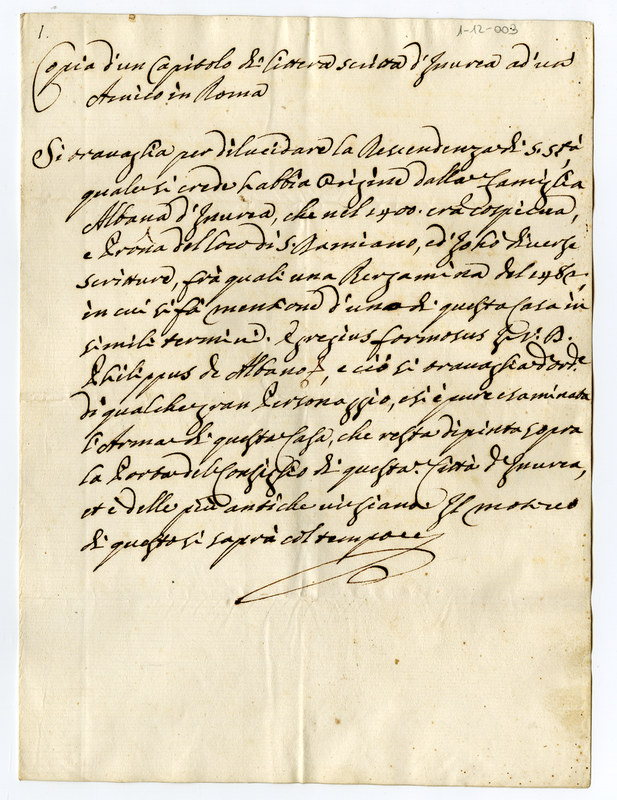 1.
1-12-003
Copia d'un Capitolo di lettera scritta d'Jnurea ad un
Amico in Roma
Si travaglia per dilucidare la Descendenza di S. Stà
quale si crede habbia Origine dalla Famiglia
Albana d'Jnurea, che nel 1400. era cospicua,
e Prõna del loco di S. Damiano, ed' hò diverse
scritture, frà quali una Bergamina del 1482.
in cui si fà mentione d'uno di questa Casa in
simili termini. Egregius formosus D.
Philippus de Albano, e ciò si travaglia d'ord.e
di qualche gran Personaggio, e si è pure esaminata
l'Arma di questa Casa, che resta dipinta sopra
la Porta del Consiglio di questa Città d'Jnurea,
et è delle più antiche vi siano. Il motivo
di questo si saprà col tempo